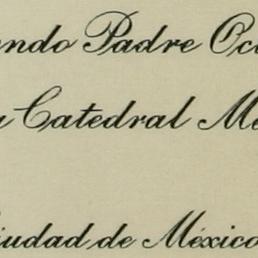 ndo Padre Oc
Catedral M
iudad de México